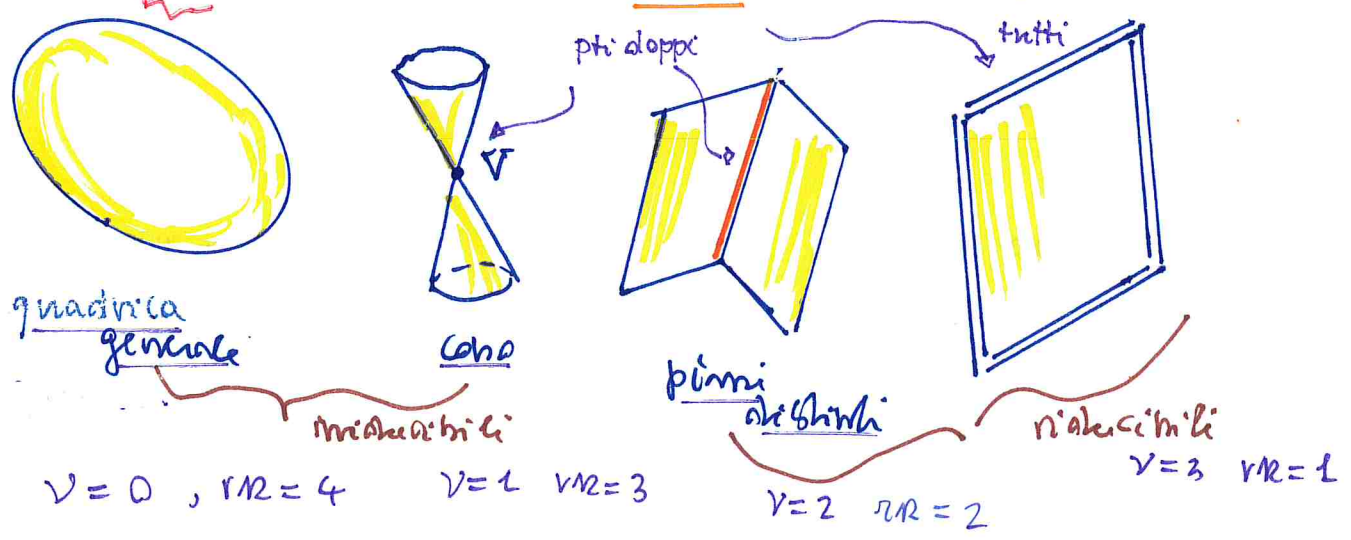 pti doppi
tutti
V
quadrica
generale
cono
piani
distinti
irriducibili
riducibili
ν = 0 , rk = 4
ν = 1 rk = 3
ν = 2 rk = 2
ν = 3 rk = 1